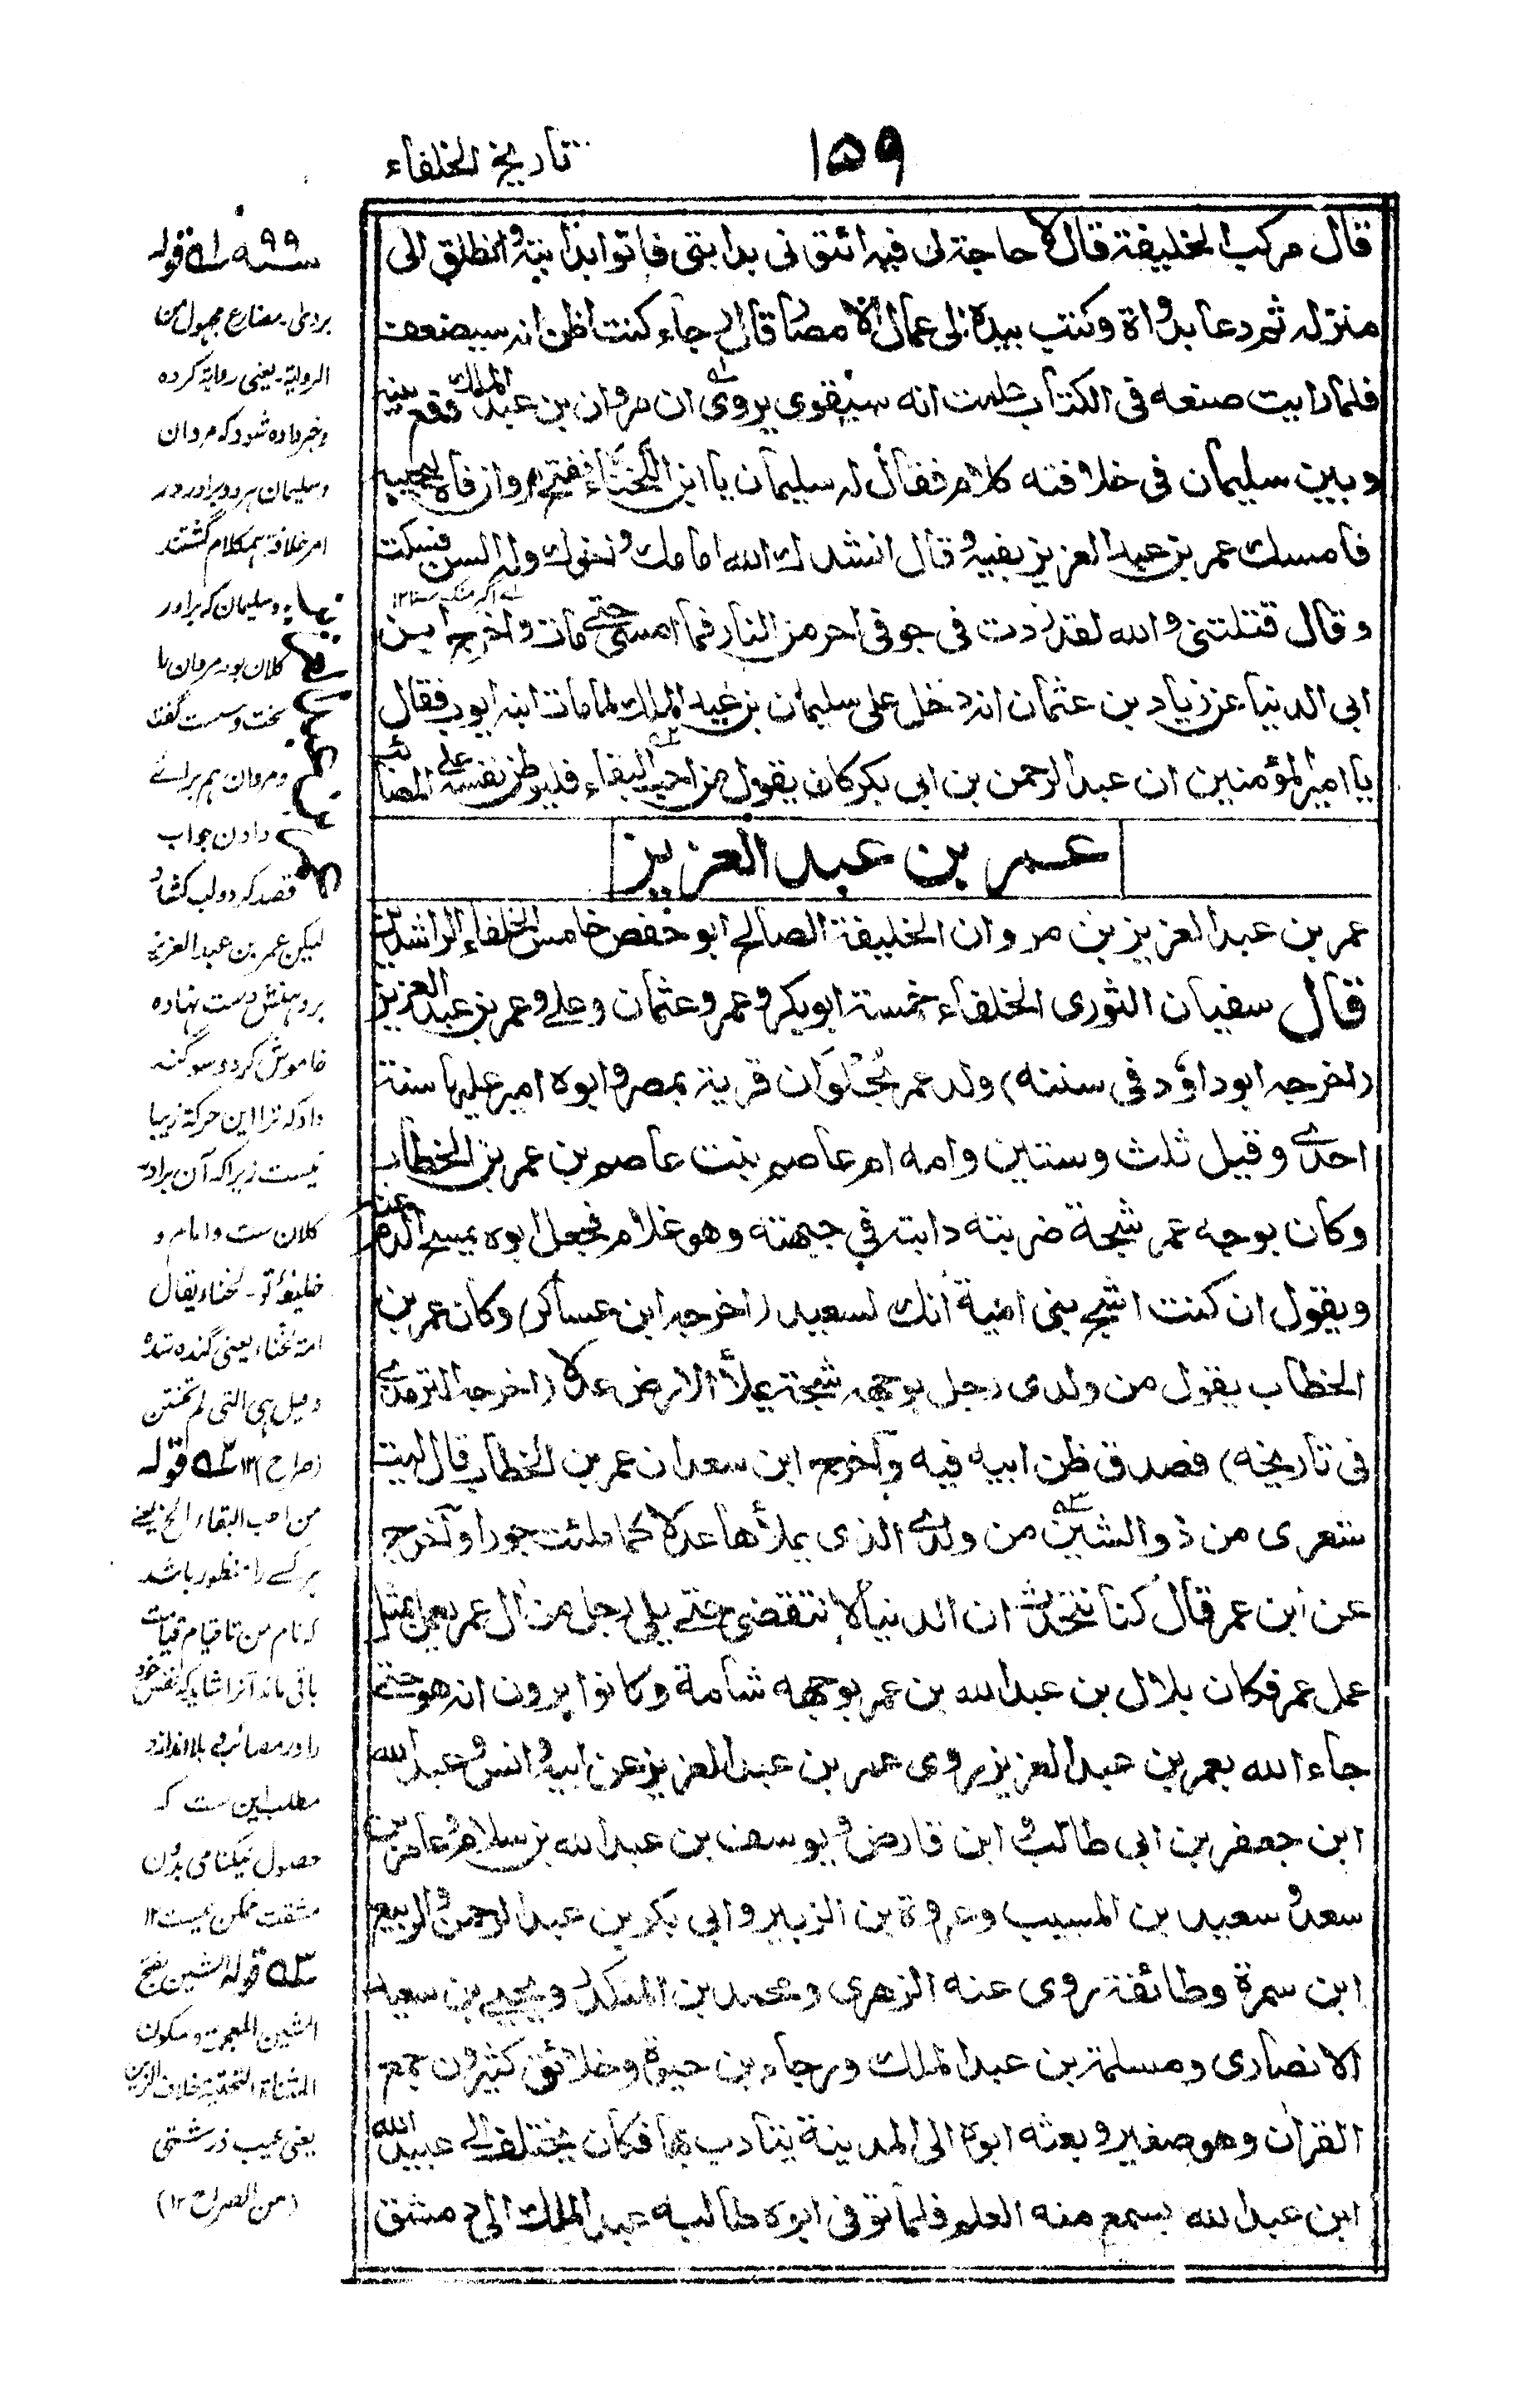 ۱۵۹
تاریخ الخلفاء
قال مركب الخليفة قال لا حاجة لى فيه ائتونى بدابتى فاتوا بدابته وانطلق الى
منزله ثم دعا بدواة وكتب بيده الى عمال الامصار قال رجاء كنت اظن انه سيضعف
فلما رايت صنعه فى الكتاب علمت انه سيقوى يروى ان مروان بن عبد الملك وقع بينه
وبين سليمان فى خلافته كلام فقال له سليمان يا ابن اللخناء ففتح مروان فاه ليجيبه
فامسك عمر بن عبد العزيز بفيه وقال انشدك الله امامك واخوك وله السن فسكت
وقال قتلتنى والله لقد زدت فى جوفى احر من النار فما امسى حتى مات واخرج ابن
ابى الدنيا عن زياد بن عثمان انه دخل على سليمان بن عبد الملك لما مات ابنه ايوب فقال
يا امير المؤمنين ان عبد الرحمن بن ابى بكر كان يقول من احب البقاء فليوطن نفسه على المصائب
عمر بن عبد العزيز
عمر بن عبد العزيز بن مروان الخليفة الصالح ابو حفص خامس الخلفاء الراشدين
قال سفيان الثورى الخلفاء خمسة ابوبكر وعمر وعثمان وعلى وعمر بن عبد العزيز
(اخرجه ابوداؤد فى سننه) ولد عمر بحلوان قرية بمصر وابوه امير عليها سنة
احدى وقيل ثلث وستين وامه ام عاصم بنت عاصم بن عمر بن الخطاب
وكان بوجه عمر شجة ضربته دابة في جبهته وهو غلام فجعل ابوه يمسح الدم عنه
ويقول ان كنت اشج بنى امية انك لسعيد (اخرجه ابن عساكر) وكان عمر بن
الخطاب يقول من ولدى رجل بوجهه شجة يملأ الارض عدلا (اخرجه الترمذى
فى تاريخه) فصدق ظن ابيه فيه وآخرج ابن سعد ان عمر بن الخطاب قال ليت
شعرى من ذو الشين من ولدى الذى يملأها عدلا كما ملئت جورا وآخرج
عن ابن عمر قال كنا نتحدث ان الدنيا لا تنقضى حتى يلى رجل من آل عمر يعمل بمثل
عمل عمر فكان بلال بن عبد الله بن عمر بوجهه شامة وكانوا يرون انه هو حتى
جاء الله بعمر بن عبد العزيز روى عمر بن عبد العزيز عن ابيه وانس وعبد الله
ابن جعفر بن ابى طالب وابن قارض ويوسف بن عبد الله بن سلام وعامر بن
سعد وسعيد بن المسيب وعروة بن الزبير وابى بكر بن عبد الرحمن والربيع
ابن سمرة وطائفة روى عنه الزهرى ومحمد بن المنكدر ويحيى بن سعيد
الانصارى ومسلمة بن عبد الملك ورجاء بن حيوة وخلائق كثيرون جمع
القران وهو صغير وبعثه ابوه الى المدينة يتادب بها فكان يختلف الى عبيد الله
ابن عبد الله يسمع منه العلم فلما توفى ابوه طلبه عبد الملك الى دمشق
سنة ۹۹ ۱ قوله
یروی۔ مضارع مجہول من
الروایة۔ یعنی روایة کردہ
وخبر دادہ شود کہ مروان
وسلیمان ہر دو برادر در
امر خلافة ہمکلام گشتند
وسلیمان کہ برادر
کلان بود مروان را
سخت وسست گفت
ومروان ہم برائے
دادن جواب
قصد کرد ولب کشاد
لیکن عمر بن عبد العزیز
بر دہنش دست نہادہ
خاموش کرد وسوگند
داد کہ ترا این حرکة زیبا
نیست زیرا کہ آن برادر
کلان ست وامام و
خلیفۂ تو۔ لخناء یقال
امة لخناء یعنی گندہ شدہ
وقیل ہی التی لم تختن
(صراح) ۱۲ ۲ قولہ
من احب البقاء الخ یعنے
ہر کسے را منظور باشد
کہ نام من تا قیام قیامت
باقی ماند آنرا شاید کہ نفس خود
را در مصائب و بلا اندازد
مطلب این ست کہ
حصول نیکنامی بدون
مشقت ممکن نیست ۱۲
۳ قولہ الشین بفتح
الشین المعجمة وسکون
المثناة التحتیة خلاف الزین
یعنی عیب وزشتی
(من الصراح ۱۲)